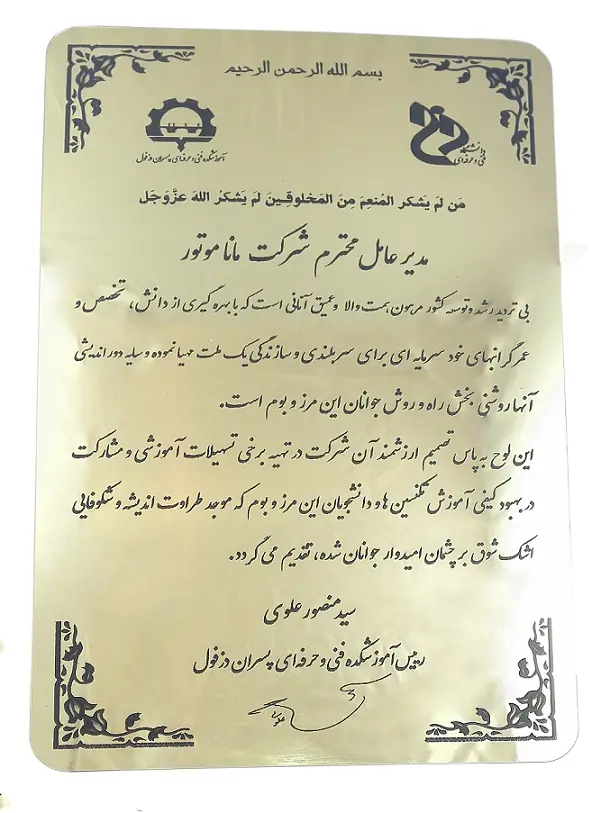 بسم الله الرحمن الرحیم
دانشگاه
فنی و حرفه‌ای
آموزشکده فنی و حرفه‌ای پسران دزفول
مَن لَم یَشکر المُنعِمَ مِنَ المَخلوقینَ لَم یَشکرُ اللهَ عزَّوَجَل
مدیر عامل محترم شرکت مانا موتور
بی تردید رشد و توسعه کشور مرهون همت والا و عمیق آنانی است که با بهره گیری از دانش، تخصص و
عمر گرانبهای خود سرمایه ای برای سربلندی و سازندگی یک ملت مهیا نموده و سایه دور اندیشی
آنها روشنی بخش راه و روش جوانان این مرز و بوم است.
این لوح به پاس تصمیم ارزشمند آن شرکت در تهیه برخی تسهیلات آموزشی و مشارکت
در بهبود کیفی آموزش تکنسین ها و دانشجویان این مرز و بوم که موجد طراوت اندیشه و شکوفایی
اشک شوق بر چشمان امیدوار جوانان شده، تقدیم می گردد.
سید منصور علوی
رییس آموزشکده فنی و حرفه ای پسران دزفول